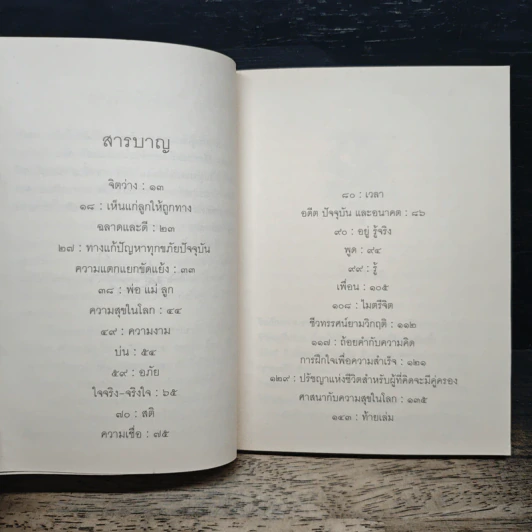 สารบาญ
จิตว่าง : ๑๓
๑๘ : เห็นแก่ลูกให้ถูกทาง
ฉลาดและดี : ๒๓
๒๗ : ทางแก้ปัญหาทุกขภัยปัจจุบัน
ความแตกแยกขัดแย้ง : ๓๓
๓๘ : พ่อ แม่ ลูก
ความสุขในโลก : ๔๔
๔๙ : ความงาม
บ่น : ๕๔
๕๙ : อภัย
ใจจริง-จริงใจ : ๖๕
๗๐ : สติ
ความเชื่อ : ๗๕
๘๐ : เวลา
อดีต ปัจจุบัน และอนาคต : ๘๖
๙๐ : อยู่ รู้จริง
พูด : ๙๔
๙๙ : รู้
เพื่อน : ๑๐๕
๑๐๘ : ไมตรีจิต
ชีวทรรศน์ยามวิกฤติ : ๑๑๒
๑๑๗ : ถ้อยคำกับความคิด
การฝึกใจเพื่อความสำเร็จ : ๑๒๑
๑๒๙ : ปรัชญาแห่งชีวิตสำหรับผู้ที่คิดจะมีคู่ครอง
ศาสนากับความสุขในโลก : ๑๓๕
๑๔๓ : ท้ายเล่ม